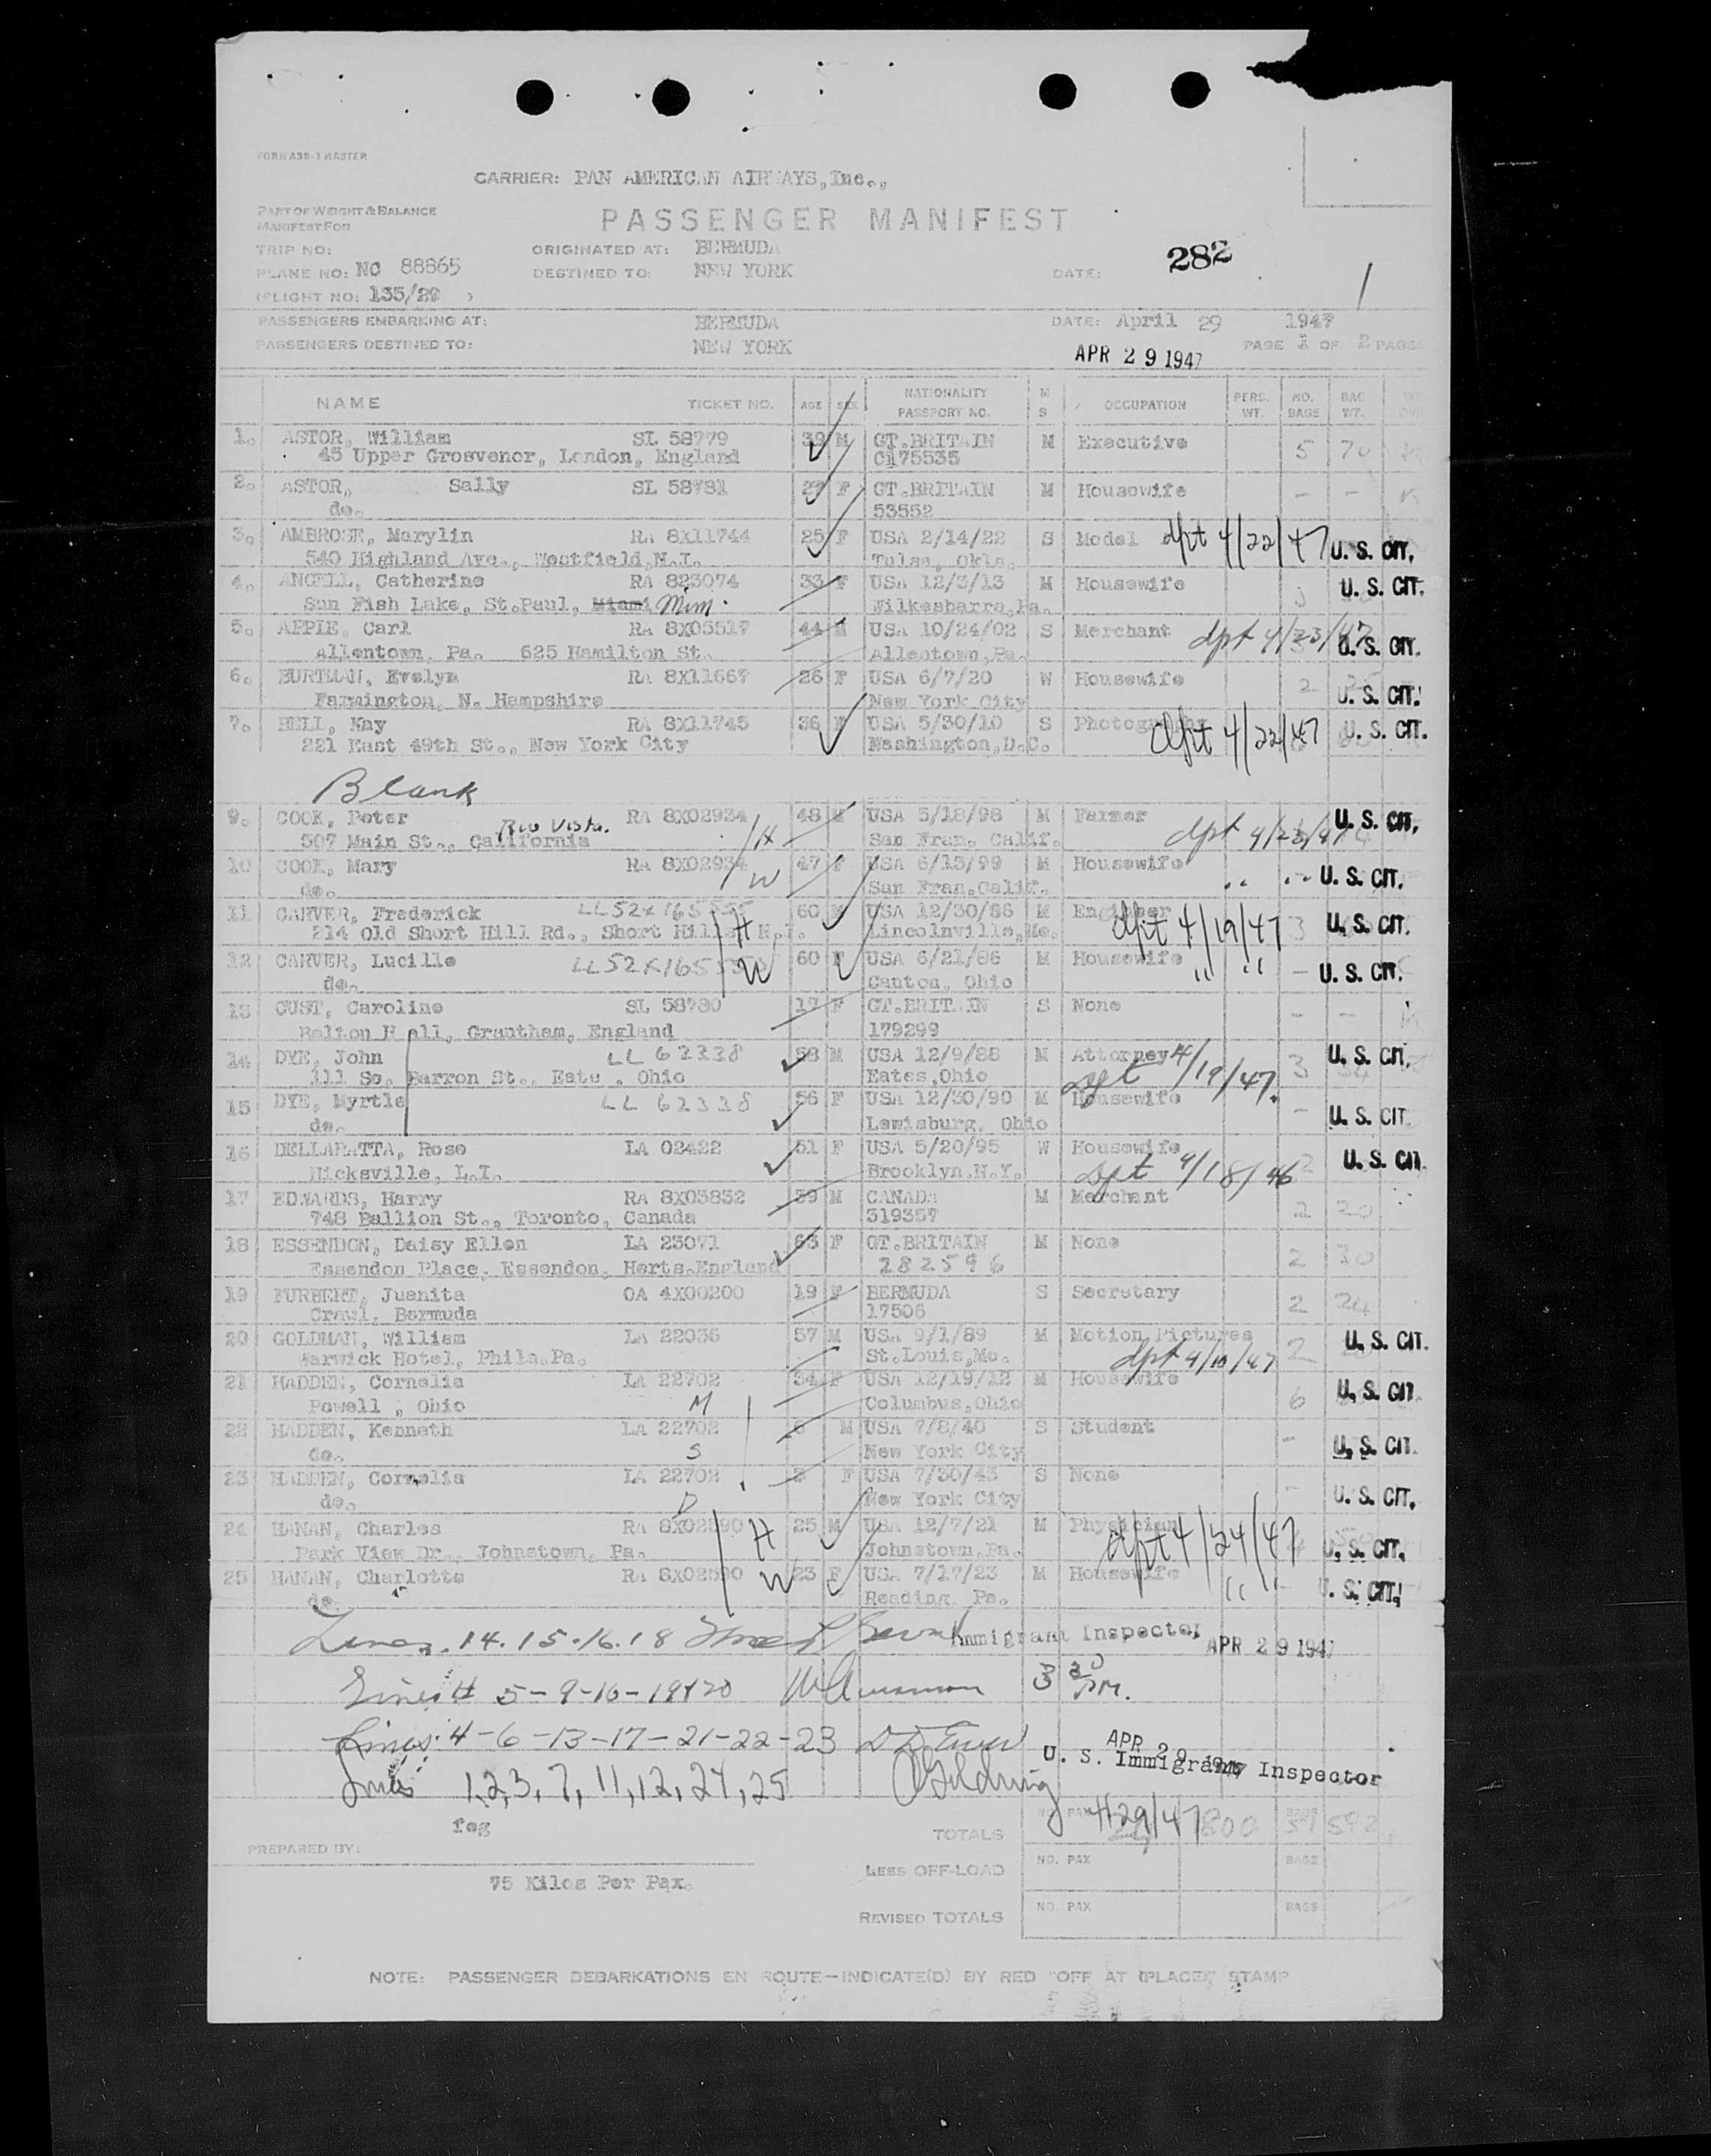 FORM A38-1 MASTER
CARRIER: PAN AMERICAN AIRWAYS, Inc.,
PART OF WEIGHT & BALANCE
MANIFEST FOR
PASSENGER MANIFEST
TRIP NO: ORIGINATED AT: BERMUDA
282
PLANE NO: NC 88865 DESTINED TO: NEW YORK DATE:
(FLIGHT NO: 135/29 )
PASSENGERS EMBARKING AT: BERMUDA DATE: April 29 1947
PASSENGERS DESTINED TO: NEW YORK APR 29 1947 PAGE 1 OF 2 PAGES
NAME TICKET NO. AGE SEX NATIONALITY PASSPORT NO. M S OCCUPATION PERS. WT. NO. BAGS BAG WT.
1. ASTOR, William SL 58779 39 M GT.BRITAIN M Executive 5 70
45 Upper Grosvenor, London, England C175535
2. ASTOR, Sally SL 58781 27 F GT.BRITAIN M Housewife - -
do. 53552
3. AMBROSE, Marylin RA 8X11744 25 F USA 2/14/22 S Model dpt 4/22/47 U. S. CIT.
540 Highland Ave., Westfield, N.J. Tulsa, Okla.
4. ANGELL, Catherine RA 823074 33 F USA 12/3/13 M Housewife 3 U. S. CIT.
Sun Fish Lake, St.Paul, Miami Minn. Wilkesbarre,Pa.
5. APPLE, Carl RA 8X05517 44 M USA 10/24/02 S Merchant dpt 4/23/47 U. S. CIT.
Allentown, Pa. 625 Hamilton St. Allentown,Pa.
6. BURTMAN, Evelyn RA 8X11667 26 F USA 6/7/20 W Housewife 2 U. S. CIT.
Farmington, N. Hampshire New York City
7. BELL, Kay RA 8X11745 36 F USA 5/30/10 S Photography dpt 4/22/47 U. S. CIT.
221 East 49th St., New York City Washington,D.C.
Blank
9. COOK, Peter RA 8X02934 48 M USA 5/18/98 M Farmer U. S. CIT.
507 Main St., Rio Vista. California H San Fran. Calif. dpt 4/23/47
10 COOK, Mary RA 8X02934 47 F USA 6/15/99 M Housewife U. S. CIT.
do. W San Fran.Calif.
11 CARVER, Frederick LL52X165555 60 M USA 12/30/86 M Engineer 3 U. S. CIT.
214 Old Short Hill Rd., Short Hills N.J. H Lincolnville,Me. dpt 4/19/47
12 CARVER, Lucille LL52X165555 60 F USA 6/21/86 M Housewife - U. S. CIT.
do. W Canton, Ohio
13 CUST, Caroline SL 58780 17 F GT.BRITAIN S None - -
Belton Hall, Grantham, England 179299
14 DYE, John LL 62338 58 M USA 12/9/88 M Attorney 3 U. S. CIT.
111 So. Barron St., Eate , Ohio Eates,Ohio dpt 4/19/47.
15 DYE, Myrtle LL 62338 56 F USA 12/30/90 M Housewife - U. S. CIT.
do. Lewisburg, Ohio
16 DELLARATTA, Rose LA 02422 51 F USA 5/20/95 W Housewife 2 U. S. CIT.
Hicksville, L.I. Brooklyn.N.Y. dpt 4/18/46
17 EDWARDS, Harry RA 8X03832 39 M CANADA M Merchant 2 20
748 Ballion St., Toronto, Canada 319357
18 ESSENDON, Daisy Ellen LA 23071 63 F GT.BRITAIN M None 2 30
Essendon Place, Essendon, Herts.England 282596
19 FURBERT, Juanita OA 4X00200 19 F BERMUDA S Secretary 2 24
Crawl, Bermuda 17506
20 GOLDMAN, William LA 22036 57 M USA 9/1/89 M Motion Pictures 2 U. S. CIT.
Warwick Hotel, Phila.Pa. St.Louis,Mo. dpt 4/10/47
21 HADDEN, Cornelia LA 22702 34 F USA 12/19/12 M Housewife 6 U. S. CIT.
Powell , Ohio M Columbus,Ohio
22 HADDEN, Kenneth LA 22702 6 M USA 7/8/40 S Student - U. S. CIT.
do. S New York City
23 HADDEN, Cornelia LA 22702 3 F USA 7/30/43 S None - U. S. CIT.
do. D New York City
24 HANAN, Charles RA 8X02590 25 M USA 12/7/21 M Physician U. S. CIT.
Park View Dr., Johnstown, Pa. H Johnstown,Pa. dpt 4/24/47
25 HANAN, Charlotte RA 8X02590 23 F USA 7/17/23 M Housewife U. S. CIT.
do. W Reading, Pa.
Lines. 14.15.16.18 Immigrant Inspector APR 29 1947
Lines # 5-9-10-19&20 3 30 PM.
Lines: 4-6-13-17-21-22-23 APR 29 1947
U. S. Immigrant Inspector
Lines 1,2,3,7,11,12,24,25
feg TOTALS NO. PAX 4/29/47 1800 BAGS 51 592
PREPARED BY:
75 Kilos Per Pax. LESS OFF-LOAD NO. PAX BAGS
REVISED TOTALS NO. PAX BAGS
NOTE: PASSENGER DEBARKATIONS EN ROUTE—INDICATE(D) BY RED "OFF AT (PLACE)" STAMP